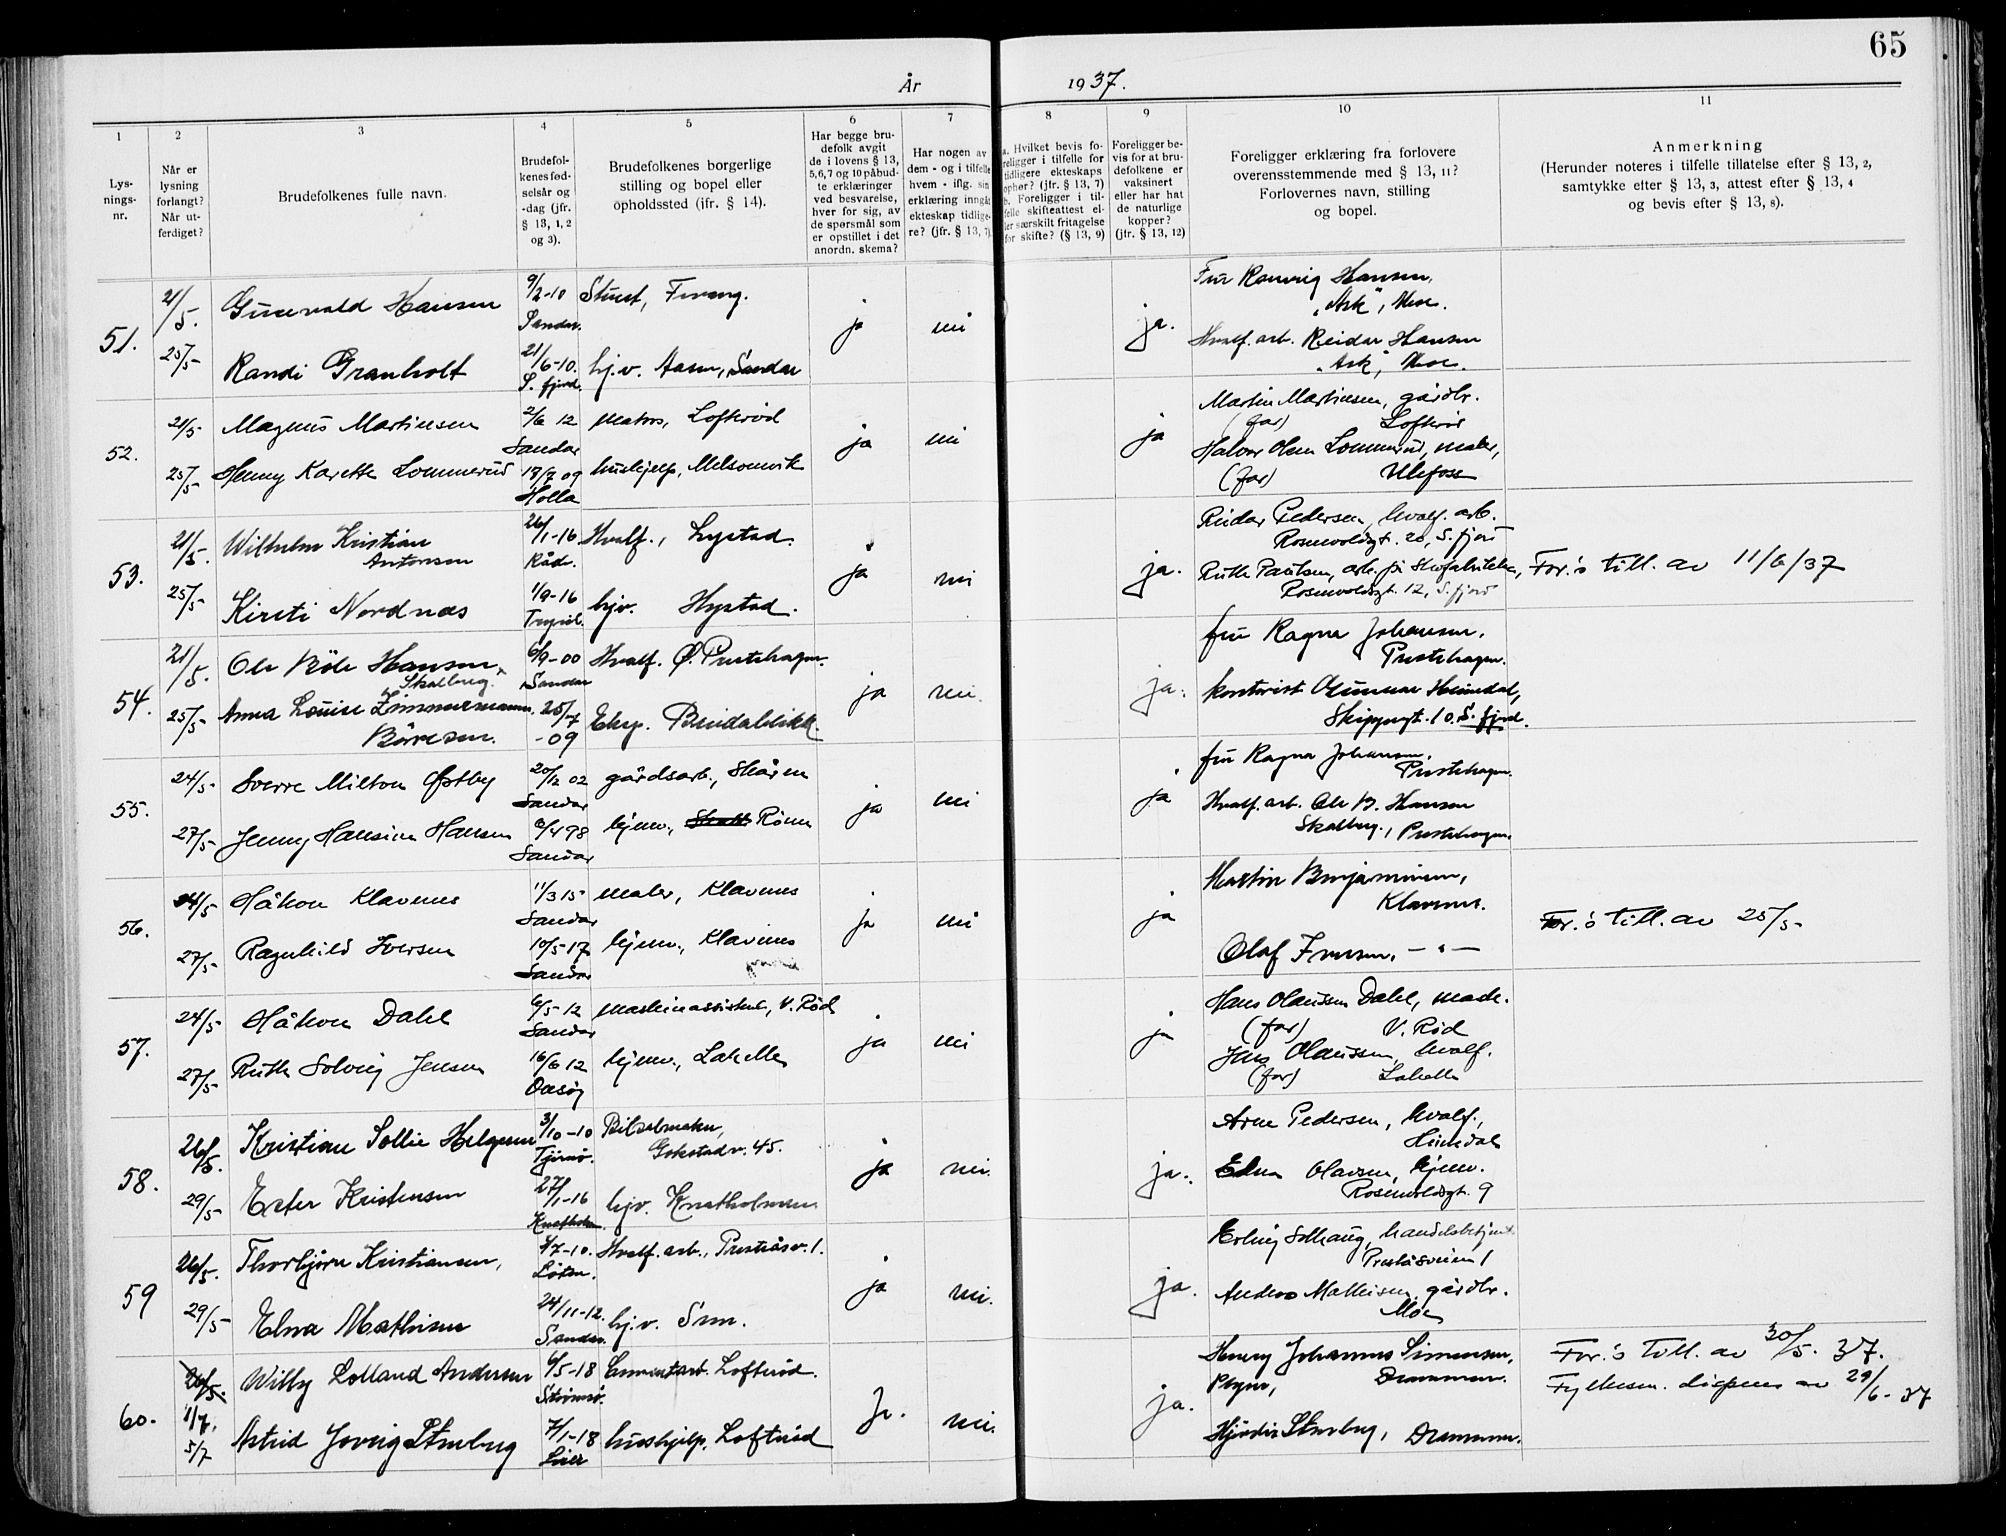 65
År 1937.
1
Lys-
nings-
nr.
2
Når er
lysning
forlangt?
Når ut-
ferdiget?
3
Brudefolkenes fulle navn.
4
Brudefol-
kenes fød-
selsår og
-dag (jfr.
§ 13, 1, 2
og 3).
5
Brudefolkenes borgerlige
stilling og bopel eller
opholdssted (jfr. § 14).
6
Har begge bru-
defolk avgit
de i lovens § 13,
5, 6, 7 og 10 påbud-
te erklæringer
ved besvarelse,
hver for sig, av
de spørsmål som
er opstillet i det
anordn. skema?
7
Har nogen av
dem - og i tilfelle
hvem - iflg. sin
erklæring inngåt
ekteskap tidlige-
re? (jfr. § 13, 7)
8
a. Hvilket bevis fo-
religger i tilfelle for
tidligere ekteskaps
ophør? (jfr. § 13, 7)
b. Foreligger i til-
felle skifteattest el-
ler særskilt fritagelse
for skifte? (§ 13, 9)
9
Foreligger be-
vis for at bru-
defolkene er
vaksinert
eller har hat
de naturlige
kopper?
(jfr. § 13, 12)
10
Foreligger erklæring fra forlovere
overensstemmende med § 13, 11?
Forlovernes navn, stilling
og bopel.
11
Anmerkning
(Herunder noteres i tilfelle tillatelse efter § 13, 2,
samtykke efter § 13, 3, attest efter § 13, 4
og bevis efter § 13, 8).
51.
21/5.
25/5
Gunevald Hansen
9/2-10
Sandar.
ja
nei
ja.
Hansen,
"Ask",
Randi Granholt
21/6-10.
S. fjord.
hj.v. Aasen, Sandar
Hvalf. arb. Reidar Hansen
"Ask",
52.
21/5
25/5
Magnus Martinsen
2/6 12
Sandar
matros, Loftrød
ja
nei
ja
Martin Martinsen, gårdbr.
(far) Loftrød
Henny Karette Lommerud
18/7 09
Holla
hushjelp, Melsomvik
Halvor Olsen Lommerud, maler,
(far) Ulefoss
53.
21/5.
25/5
Wilhelm Kristian
Antonsen
26/1-16
Råde.
Hvalf., Hystad.
ja
nei
ja.
Reidar Pedersen, hvalf. arb.
Rosenvoldsgt. 20, S. fjord
Kirsti Nordnes
1/9-16
Trysil.
hjv. Hystad.
Ruth Paulsen, arb. på Skofabrikken,
Rosenvoldsgt. 12, S. fjord
For.s till. av 11/6/37
54.
21/5.
25/5
Ole Bøle Hansen
Skalberg.
6/9-00
Sandar
Hvalf. Ø. Prestehagen.
ja
nei.
ja.
fru Ragna Johansen,
Prestehagen.
Anna Louise Zimmermann
Børresen.
25/7
-09
Eksp. Breidablikk.
kontorist Gunnar Heimdal,
Skippergt. 10. S. fjord.
55.
24/5
27/5
Sverre Milton Østby
20/12 02
Sandar
gårdsarb., Skåren
ja
nei
ja
fru Ragna Johansen,
Prestehagen.
Jenny Hansine Hansen
6/4 98
Sandar
hjemv.,
Hvalf. arb. Ole B. Hansen
Skalberg, Prestehagen.
56.
24/5
27/5
Håkon Klavenes
11/3 15
Sandar
maler, Klavenes
ja
nei
ja
Martin Benjaminsen,
Klavenes.
Ragnhild Iversen
10/5-17
Sandar
hjemv., Klavenes
Olaf Iversen, — " —
For.s till. av 25/5
57.
24/5
27/5
Håkon Dahl
6/5-12
Sandar
maskinassistent, V. Rød
ja
nei
ja
Hans Olaussen Dahl, mask.
(far) V. Rød
Ruth Solveig Jensen
16/6 12
hjemv., Lahelle
Jens Olaussen, hvalf.
(far) Lahelle
58.
26/5.
29/5
Kristian Sollie Helgesen
3/10-10
Tjømø.
Gokstadv. 45.
ja
nei.
ja.
Arne Pedersen, hvalf.,
Heimdal
Ester Kristensen
27/1-16
hjv. Knatholmen
Edna Olavsen, hjemv.
Rosenvoldsgt. 9
59
26/5.
29/5
Thorbjørn Kristiansen,
4/7-10.
Løten.
Hvalf. arb., Presteåsv. 1.
ja
nei.
ja.
Erling Solhaug, handelsbetjent
Presteåsveien 1
Elna Mathisen
24/11-12.
Sandar.
hj.v.
Anders Mathisen, gårdbr.
Moe
60.
26/5.
1/7.
5/7
Willy Lolland Andersen
6/5-18
Strømsø.
Sementarb. Loftrød.
ja.
nei.
ja.
Henry Johannes Simensen,
Drammen.
Astrid Jorveig Stenberg
7/1-18
Lier
hushjelp, Loftrød
Hjørdis Stenberg, Drammen.
For.s till. av 30/5. 37.
Fylkesm. dispens av 29/6-37